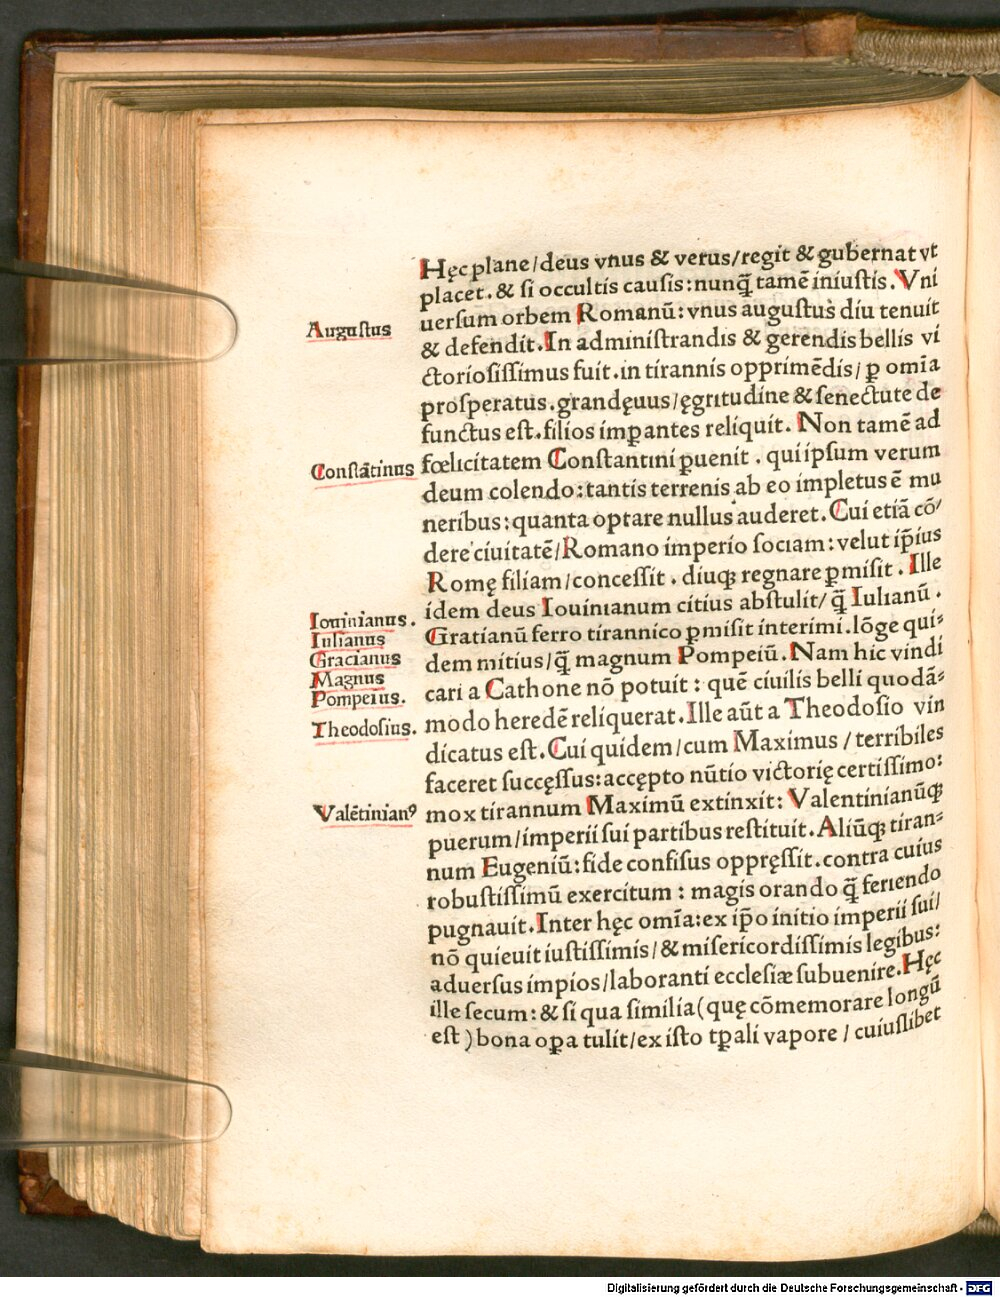 Hęc plane/deus vnus & verus/regit & gubernat vt
placet. & si occultis causis: nunq̃ tamē iniustis. Vni
Augustus
uersum orbem Romanū: vnus augustus diu tenuit
& defendit. In administrandis & gerendis bellis vi
ctoriosissimus fuit. in tirannis opprimēdis/ ꝑ om̄ia
prosperatus. grandęuus/ęgritudine & senectute de
functus est. filios imꝑantes reliquit. Non tamē ad
Constātinus
fœlicitatem Constantini ꝑuenit. qui ipsum verum
deum colendo: tantis terrenis ab eo impletus ē mu
neribus: quanta optare nullus auderet. Cui etiā cō/
dere ciuitatē/Romano imperio sociam: velut ip̄ius
Romę filiam/concessit. diuqꝫ regnare ꝑmisit. Ille
idem deus Iouinianum citius abstulit/ q̃ Iulianū.
Iouinianus.
Iulianus
Gracianus
Magnus
Pompeius.
Gratianū ferro tirannico ꝑmisit interimi. lōge qui⸗
dem mitius/q̃ magnum Pompeiū. Nam hic vindi
cari a Cathone nō potuit: quē ciuilis belli quodā⸗
Theodosius.
modo heredē reliquerat. Ille aūt a Theodosio vin
dicatus est. Cui quidem/cum Maximus/terribiles
faceret succęssus: accępto nūtio victorię certissimo:
Valētinianꝰ
mox tirannum Maximū extinxit: Valentinianūqꝫ
puerum/imperii sui partibus restituit. Aliūqꝫ tiran⸗
num Eugeniū: fide confisus oppręssit. contra cuius
robustissimū exercitum: magis orando q̃ feriendo
pugnauit. Inter hęc om̄ia: ex ip̄o initio imperii sui/
nō quieuit iustissimis/& misericordissimis legibus:
aduersus impios/laboranti ecclesiæ subuenire. Hęc
ille secum: & si qua similia (quę cōmemorare longū
est) bona oꝑa tulit/ex isto tꝑali vapore/ cuiuslibet
Digitalisierung gefördert durch die Deutsche Forschungsgemeinschaft - DFG